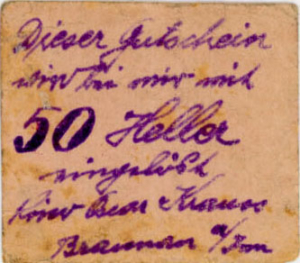 Dieser Gutschein
wird bei mir mit
50 Heller
eingelöst
Kraus
Braunau a/Inn